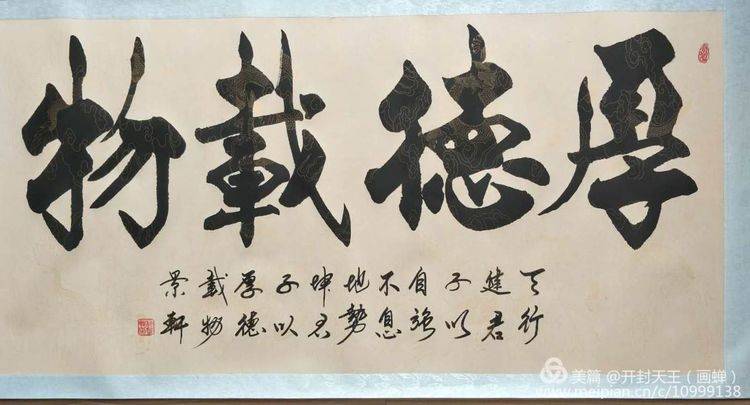 厚德載物
天行
健君
子以
自強
不息
地勢
坤君
子以
厚德
載物
景軒
美篇 @开封天王（画蝉）
www.meipian.cn/c/10999138